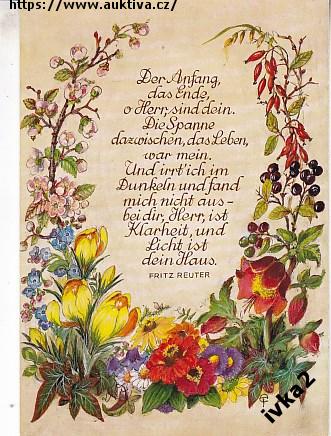 https://www.auktiva.cz/
Der Anfang,
das Ende,
o Herr, sind dein.
Die Spanne
dazwischen, das Leben,
war mein.
Und irrt' ich im
Dunkeln und fand
mich nicht aus-
bei dir, Herr, ist
Klarheit, und
Licht ist
dein Haus.
FRITZ REUTER
ivka2